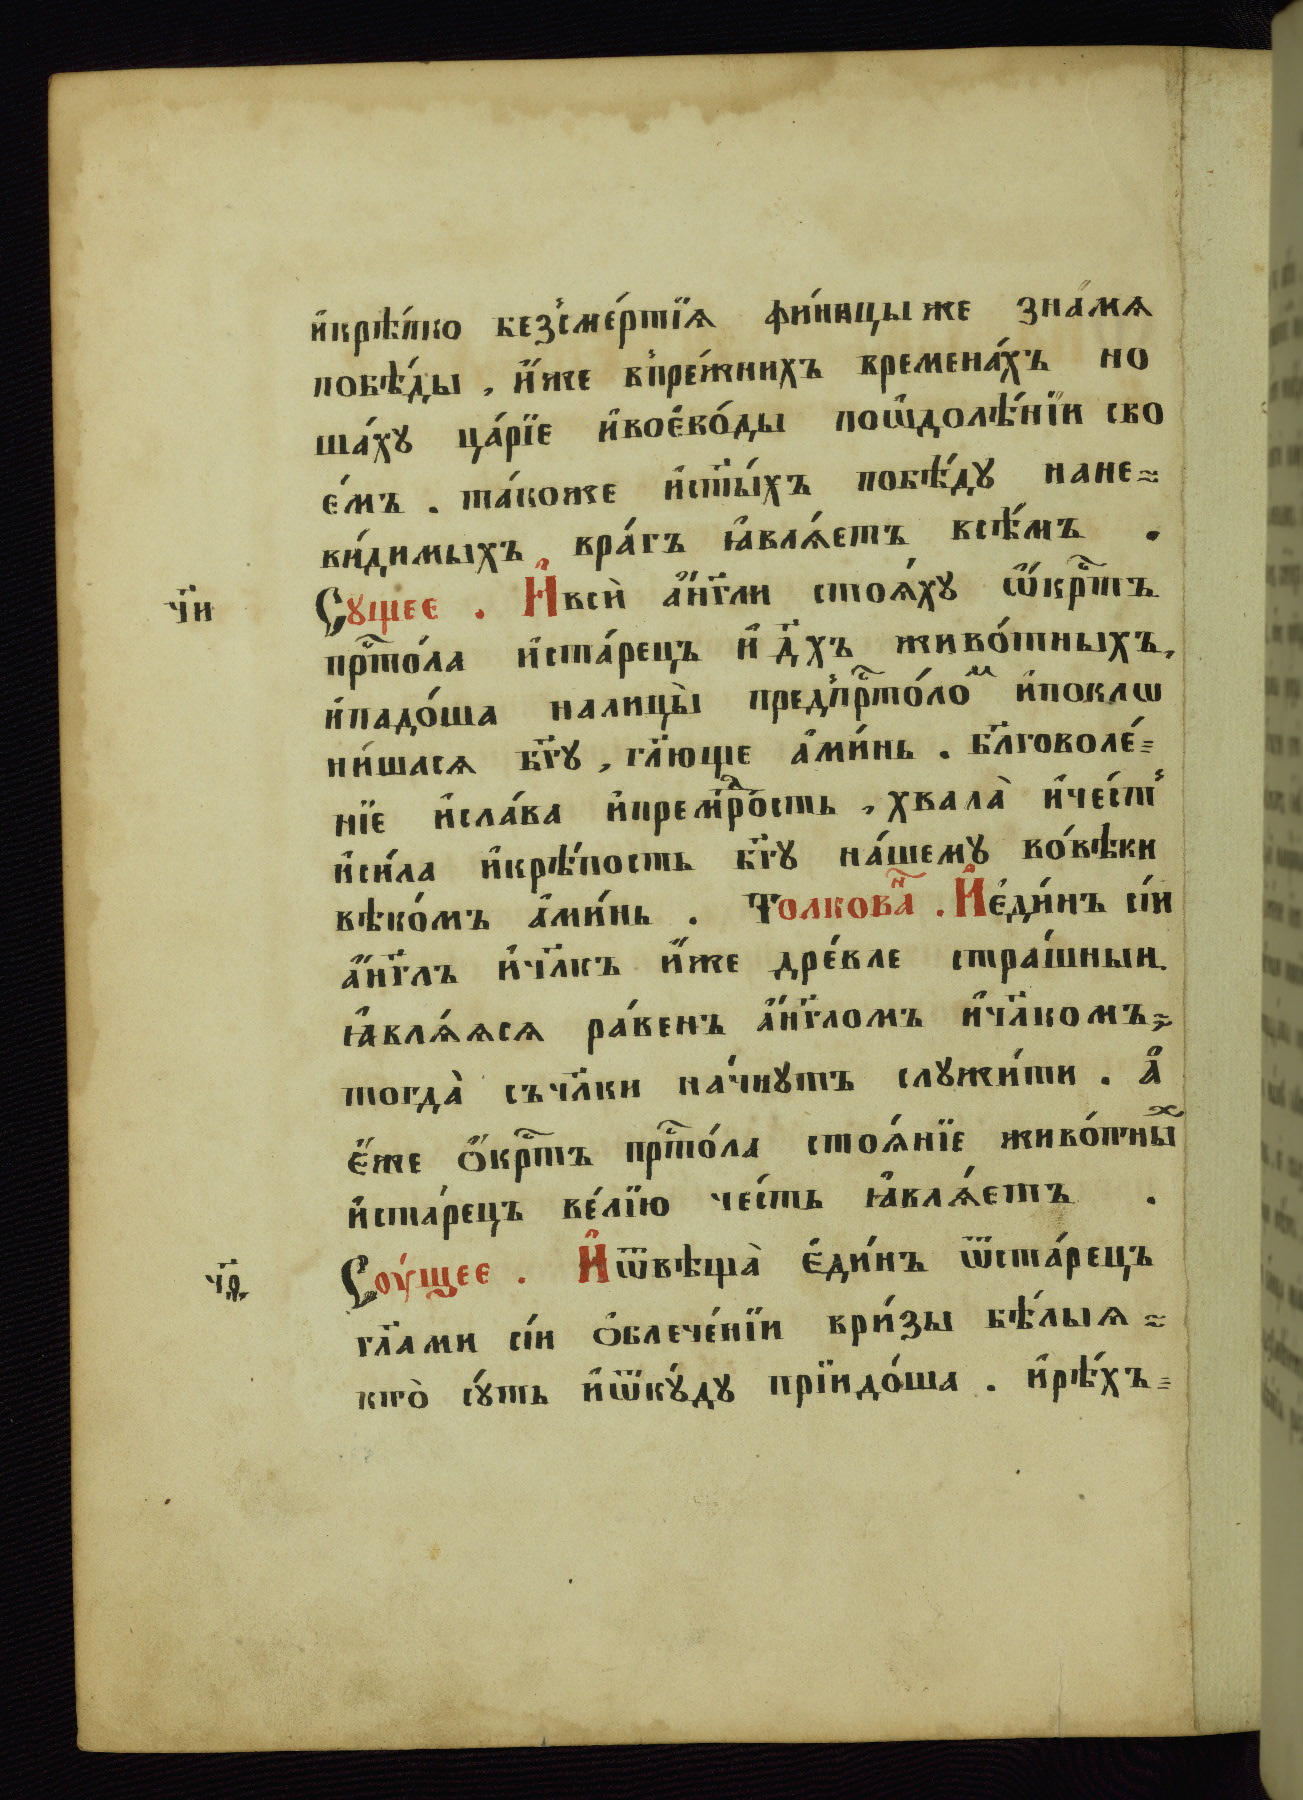 и҆крѣ́пко без̾сме́ртїѧ фи́ницы же зна́мѧ
побѣ́ды , и҆́же в̾пре́жнихъ временáхъ но
шáхꙋ ца́рїе и҆вое҆во́ды поѿдолѣ́нїи сво
е́мъ . та́коже и҆ст҃ы́хъ побѣ́дꙋ нане=
ви́димыхъ , вра́гъ ꙗ҆влѧ́етъ всѣ́мъ .
ч҃и Сꙋщее . И҆всѝ а҆́нг҃ли стоѧ́хꙋ ѡ҆́крⷭ҇тъ
прⷭ҇то́ла и҆ста́рецъ и҆ д҃хъ живо́тныхъ,
и҆падо́ша налицы̀ пред̾прⷭ҇то́лоⷨ и҆поклѡ
ни́шасѧ бг҃ꙋ , гл҃юще а҆ми́нь . бл҃говоле́=
нїе и҆сла́ва и҆премⷣ́рость , хвала̀ и҆че́ст̾
и҆си́ла и҆крѣ́пость бг҃ꙋ на́шемꙋ во́вѣки
вѣко́мъ а҆ми́нь . Толковаⷩ҇ . И҆е҆ди́нъ сі́и
а҆́нг҃лъ и҆чл҃къ и҆́же дре́вле стра́шныи
ꙗ҆влѧ́ѧсѧ ра́венъ а҆́нг҃ломъ и҆чл҃комъ,=
тогда̀ съчл҃ки на́чнꙋтъ слꙋжи́ти . а҆̀
є҆́же ѻ҆́крⷭ҇тъ прⷭ҇то́ла стоѧ́нїе живо́тныⷯ
и҆ста́рецъ ве́лїю че́сть ꙗ҆влѧ́етъ .
ч҃ѳ. Соу́щее . И҆ѿвѣща̀ є҆ди́нъ ѿста́рецъ
гл҃ами сі́и ѻ҆блече́нїи ври́зы бѣ́лыѧ =
кто̀ сꙋ́ть и҆ѿкꙋ́дꙋ прїидо́ша . и҆рѣ́хъ=